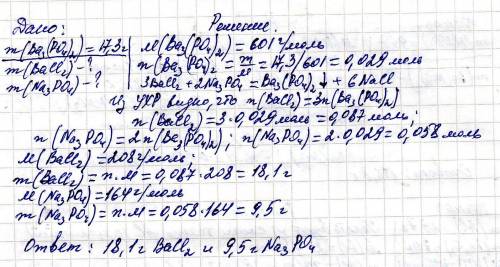 Дано: Решение.
m(Ba₃(PO₄)₂) = 17,3г
m(BaCl₂) - ?
m(Na₃PO₄) - ?
M(Ba₃(PO₄)₂) = 601 г/моль
n(Ba₃(PO₄)₂ = m/M = 17,3/601 = 0,029 моль
3BaCl₂ + 2Na₃PO₄ = Ba₃(PO₄)₂↓ + 6NaCl
Из УХР видно, что n(BaCl₂) = 3n(Ba₃(PO₄)₂)
n(BaCl₂) = 3·0,029 моль = 0,087 моль;
n(Na₃PO₄) = 2n(Ba₃(PO₄)₂); n(Na₃PO₄) = 2·0,029 = 0,058 моль
M(BaCl₂) = 208 г/моль;
m(BaCl₂) = n·M = 0,087·208 = 18,1 г
M(Na₃PO₄) = 164 г/моль
m(Na₃PO₄) = n·M = 0,058·164 = 9,5 г
Ответ: 18,1 г BaCl₂ и 9,5 г Na₃PO₄